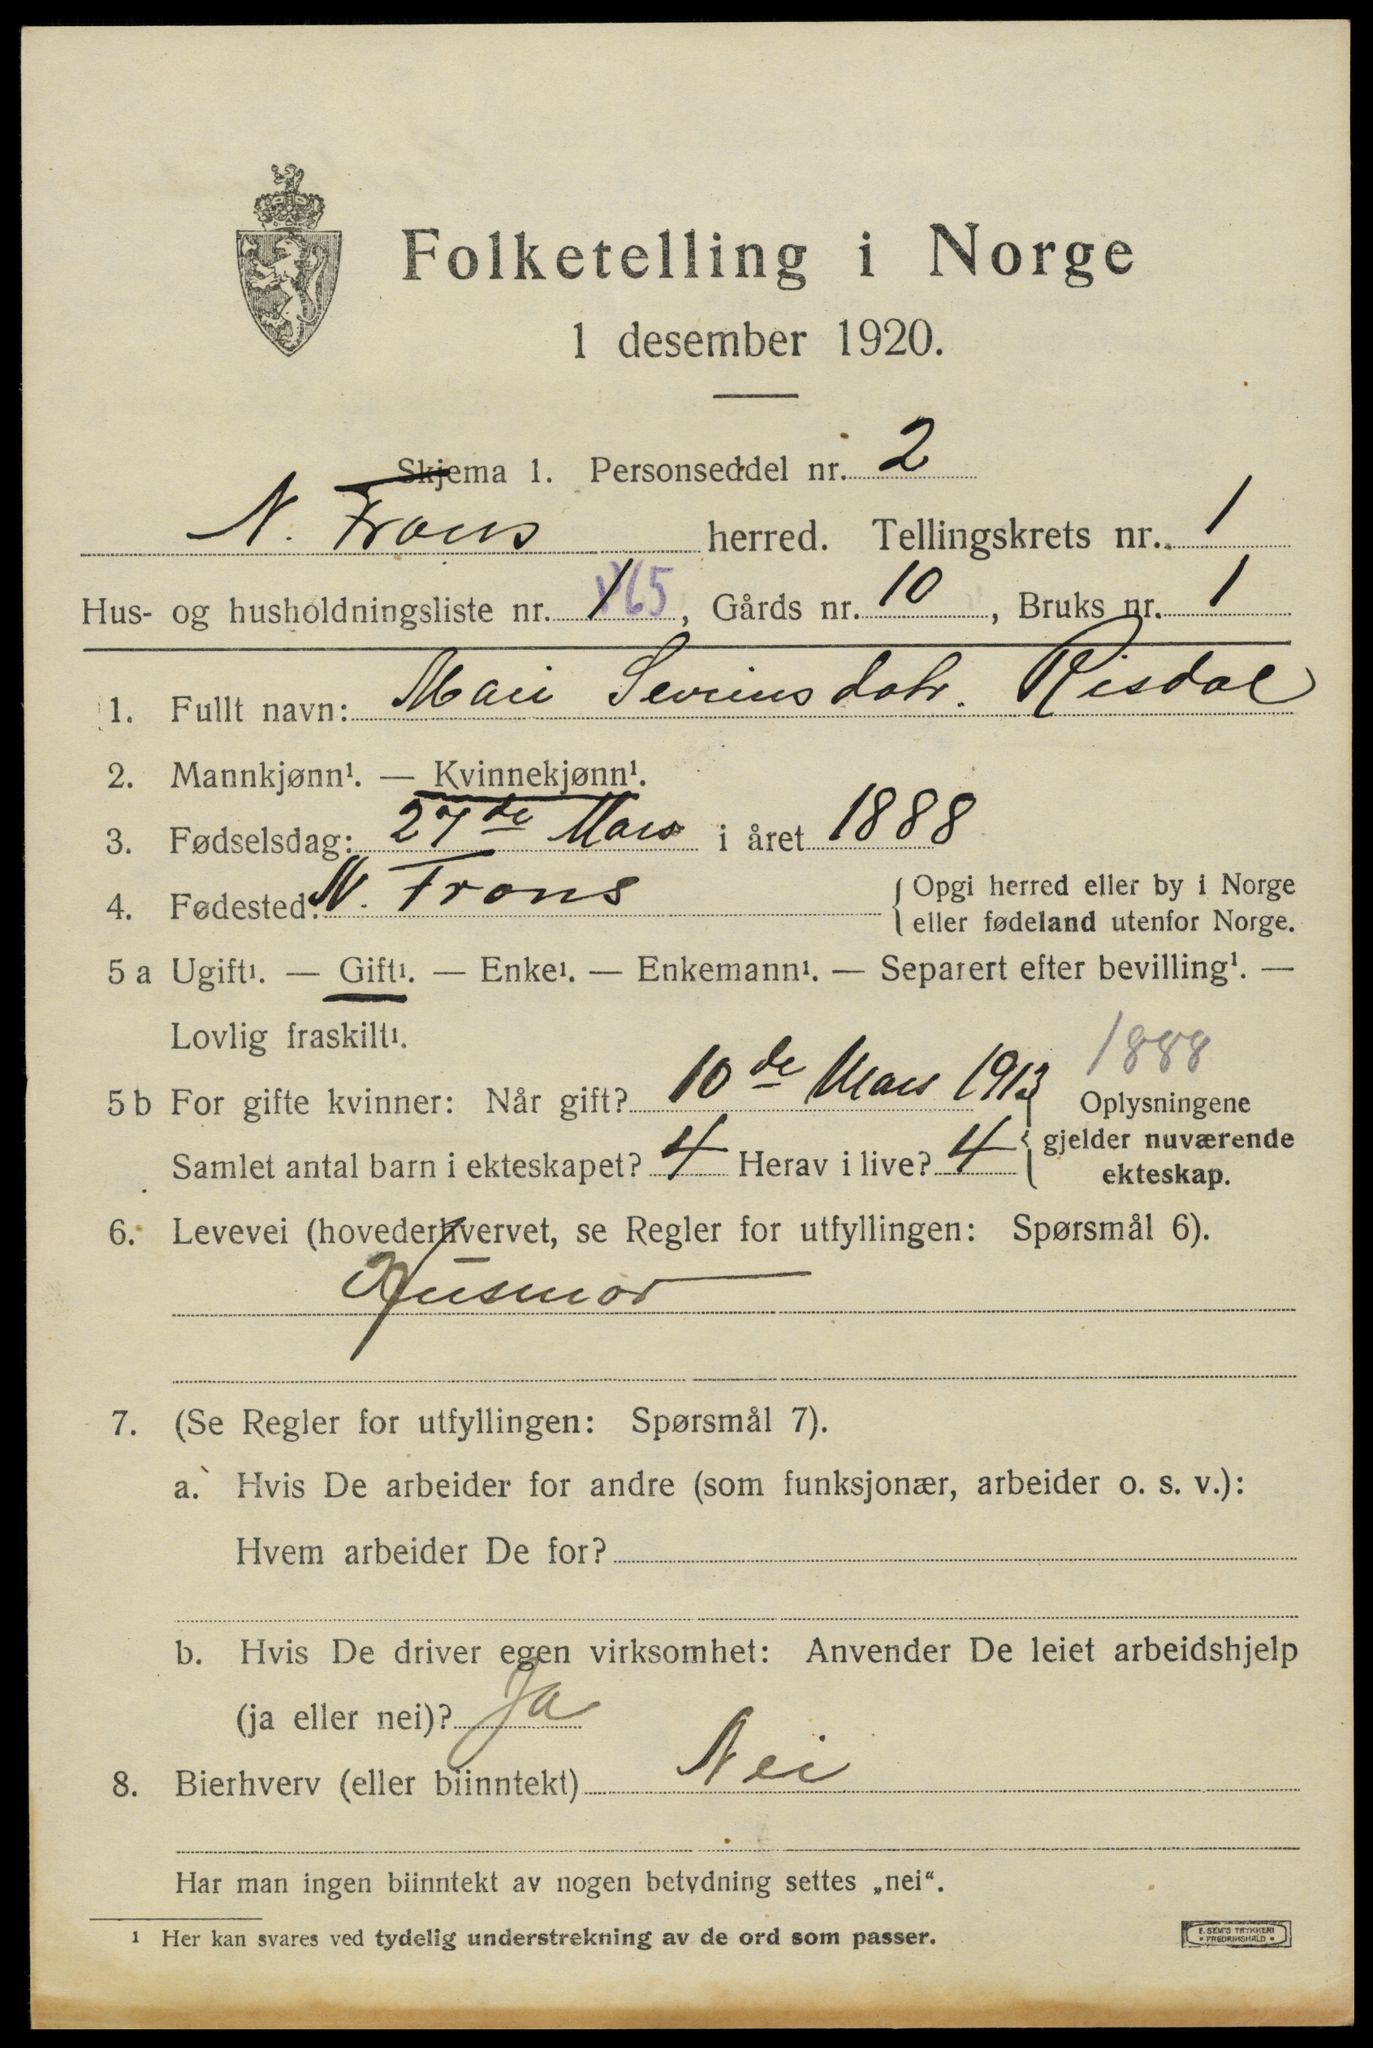 Folketelling i Norge
1 desember 1920.
Skjema 1. Personseddel nr. 2
N. Frons herred. Tellingskrets nr. 1
Hus- og husholdningsliste nr. 1 865, Gårds nr. 10, Bruks nr. 1
1. Fullt navn: Mari Severinsdotr. Risdal
2. Mannkjønn¹. — Kvinnekjønn¹.
3. Fødselsdag: 27de Mars i året 1888
4. Fødested: N. Frons { Opgi herred eller by i Norge
eller fødeland utenfor Norge.
5 a Ugift¹. — Gift¹. — Enke¹. — Enkemann¹. — Separert efter bevilling¹. —
Lovlig fraskilt¹.
1888
5 b For gifte kvinner: Når gift? 10de Mars 1913 { Oplysningene
Samlet antal barn i ekteskapet? 4 Herav i live? 4 gjelder nuværende
ekteskap.
6. Levevei (hovederhvervet, se Regler for utfyllingen: Spørsmål 6).
Husmor
7. (Se Regler for utfyllingen: Spørsmål 7).
a. Hvis De arbeider for andre (som funksjonær, arbeider o. s. v.):
Hvem arbeider De for?
b. Hvis De driver egen virksomhet: Anvender De leiet arbeidshjelp
(ja eller nei)? Ja
8. Bierhverv (eller biinntekt) Nei
Har man ingen biinntekt av nogen betydning settes „nei“.
¹ Her kan svares ved tydelig understrekning av de ord som passer.
E. SEM'S TRYKKERI
FREDRIKSHALD